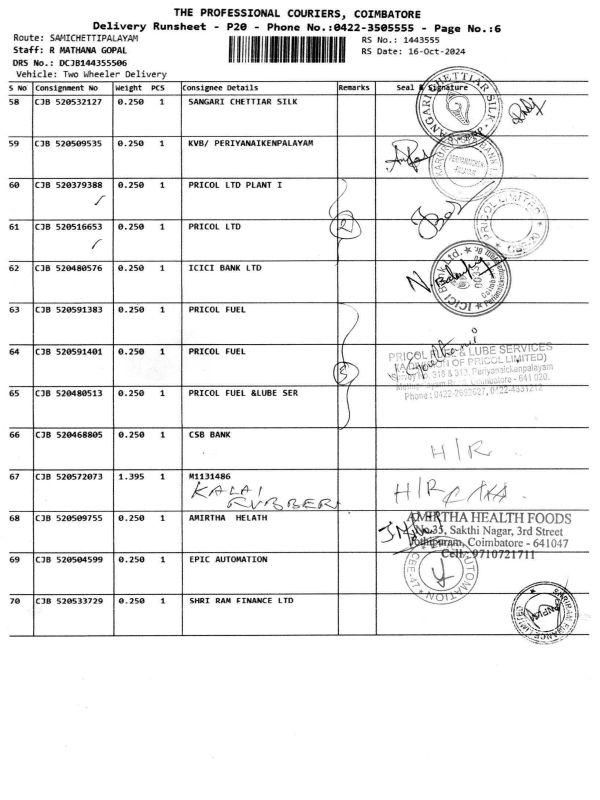 THE PROFESSIONAL COURIERS, COIMBATORE
Delivery Runsheet - P20 - Phone No.:0422-3505555 - Page No.:6
Route: SAMICHETTIPALAYAM
RS No.: 1443555
Staff: R MATHANA GOPAL
RS Date: 16-Oct-2024
DRS No.: DCJB144355506
Vehicle: Two Wheeler Delivery
S No Consignment No Weight PCS Consignee Details Remarks Seal & Signature
58 CJB 520532127 0.250 1 SANGARI CHETTIAR SILK
59 CJB 520509535 0.250 1 KVB/ PERIYANAIKENPALAYAM
60 CJB 520379388 0.250 1 PRICOL LTD PLANT I
61 CJB 520516653 0.250 1 PRICOL LTD 2
PRICOL LIMITED
62 CJB 520480576 0.250 1 ICICI BANK LTD
ICICI Bank Ltd.
63 CJB 520591383 0.250 1 PRICOL FUEL
64 CJB 520591401 0.250 1 PRICOL FUEL 3
PRICOL FUEL & LUBE SERVICES
(A DIVISION OF PRICOL LIMITED)
Survey No. 316 & 313, Periyanaickenpalayam
Coimbatore - 641 020.
65 CJB 520480513 0.250 1 PRICOL FUEL &LUBE SER
66 CJB 520468805 0.250 1 CSB BANK H/R
67 CJB 520572073 1.395 1 M1131486
KALAI
RUBBER
H/R
68 CJB 520509755 0.250 1 AMIRTHA HELATH
AMIRTHA HEALTH FOODS
No.35, Sakthi Nagar, 3rd Street
Jothipuram, Coimbatore - 641047
Cell: 9710721711
69 CJB 520504599 0.250 1 EPIC AUTOMATION
70 CJB 520533729 0.250 1 SHRI RAM FINANCE LTD